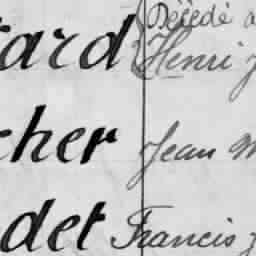 Décédé a
tard Henri J
cher Jean M
det Francis J